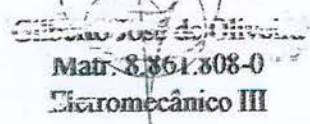 Gilberto José de Oliveira
Matr. 8.861.808-0
Eletromecânico III